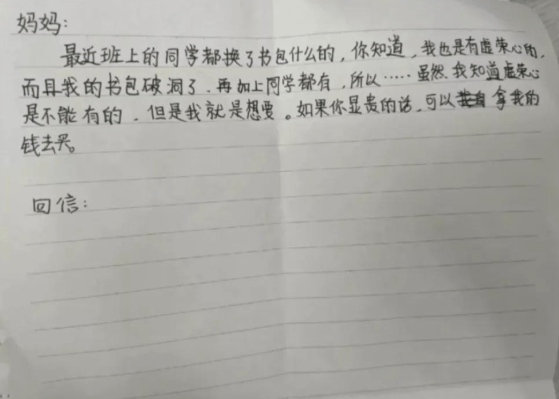 妈妈:
最近班上的同学都换了书包什么的,你知道,我也是有虚荣心的,
而且我的书包破洞了.再加上同学都有,所以……虽然我知道虚荣心
是不能有的.但是我就是想要。如果你显贵的话,可以拿我的
钱去买。
回信: